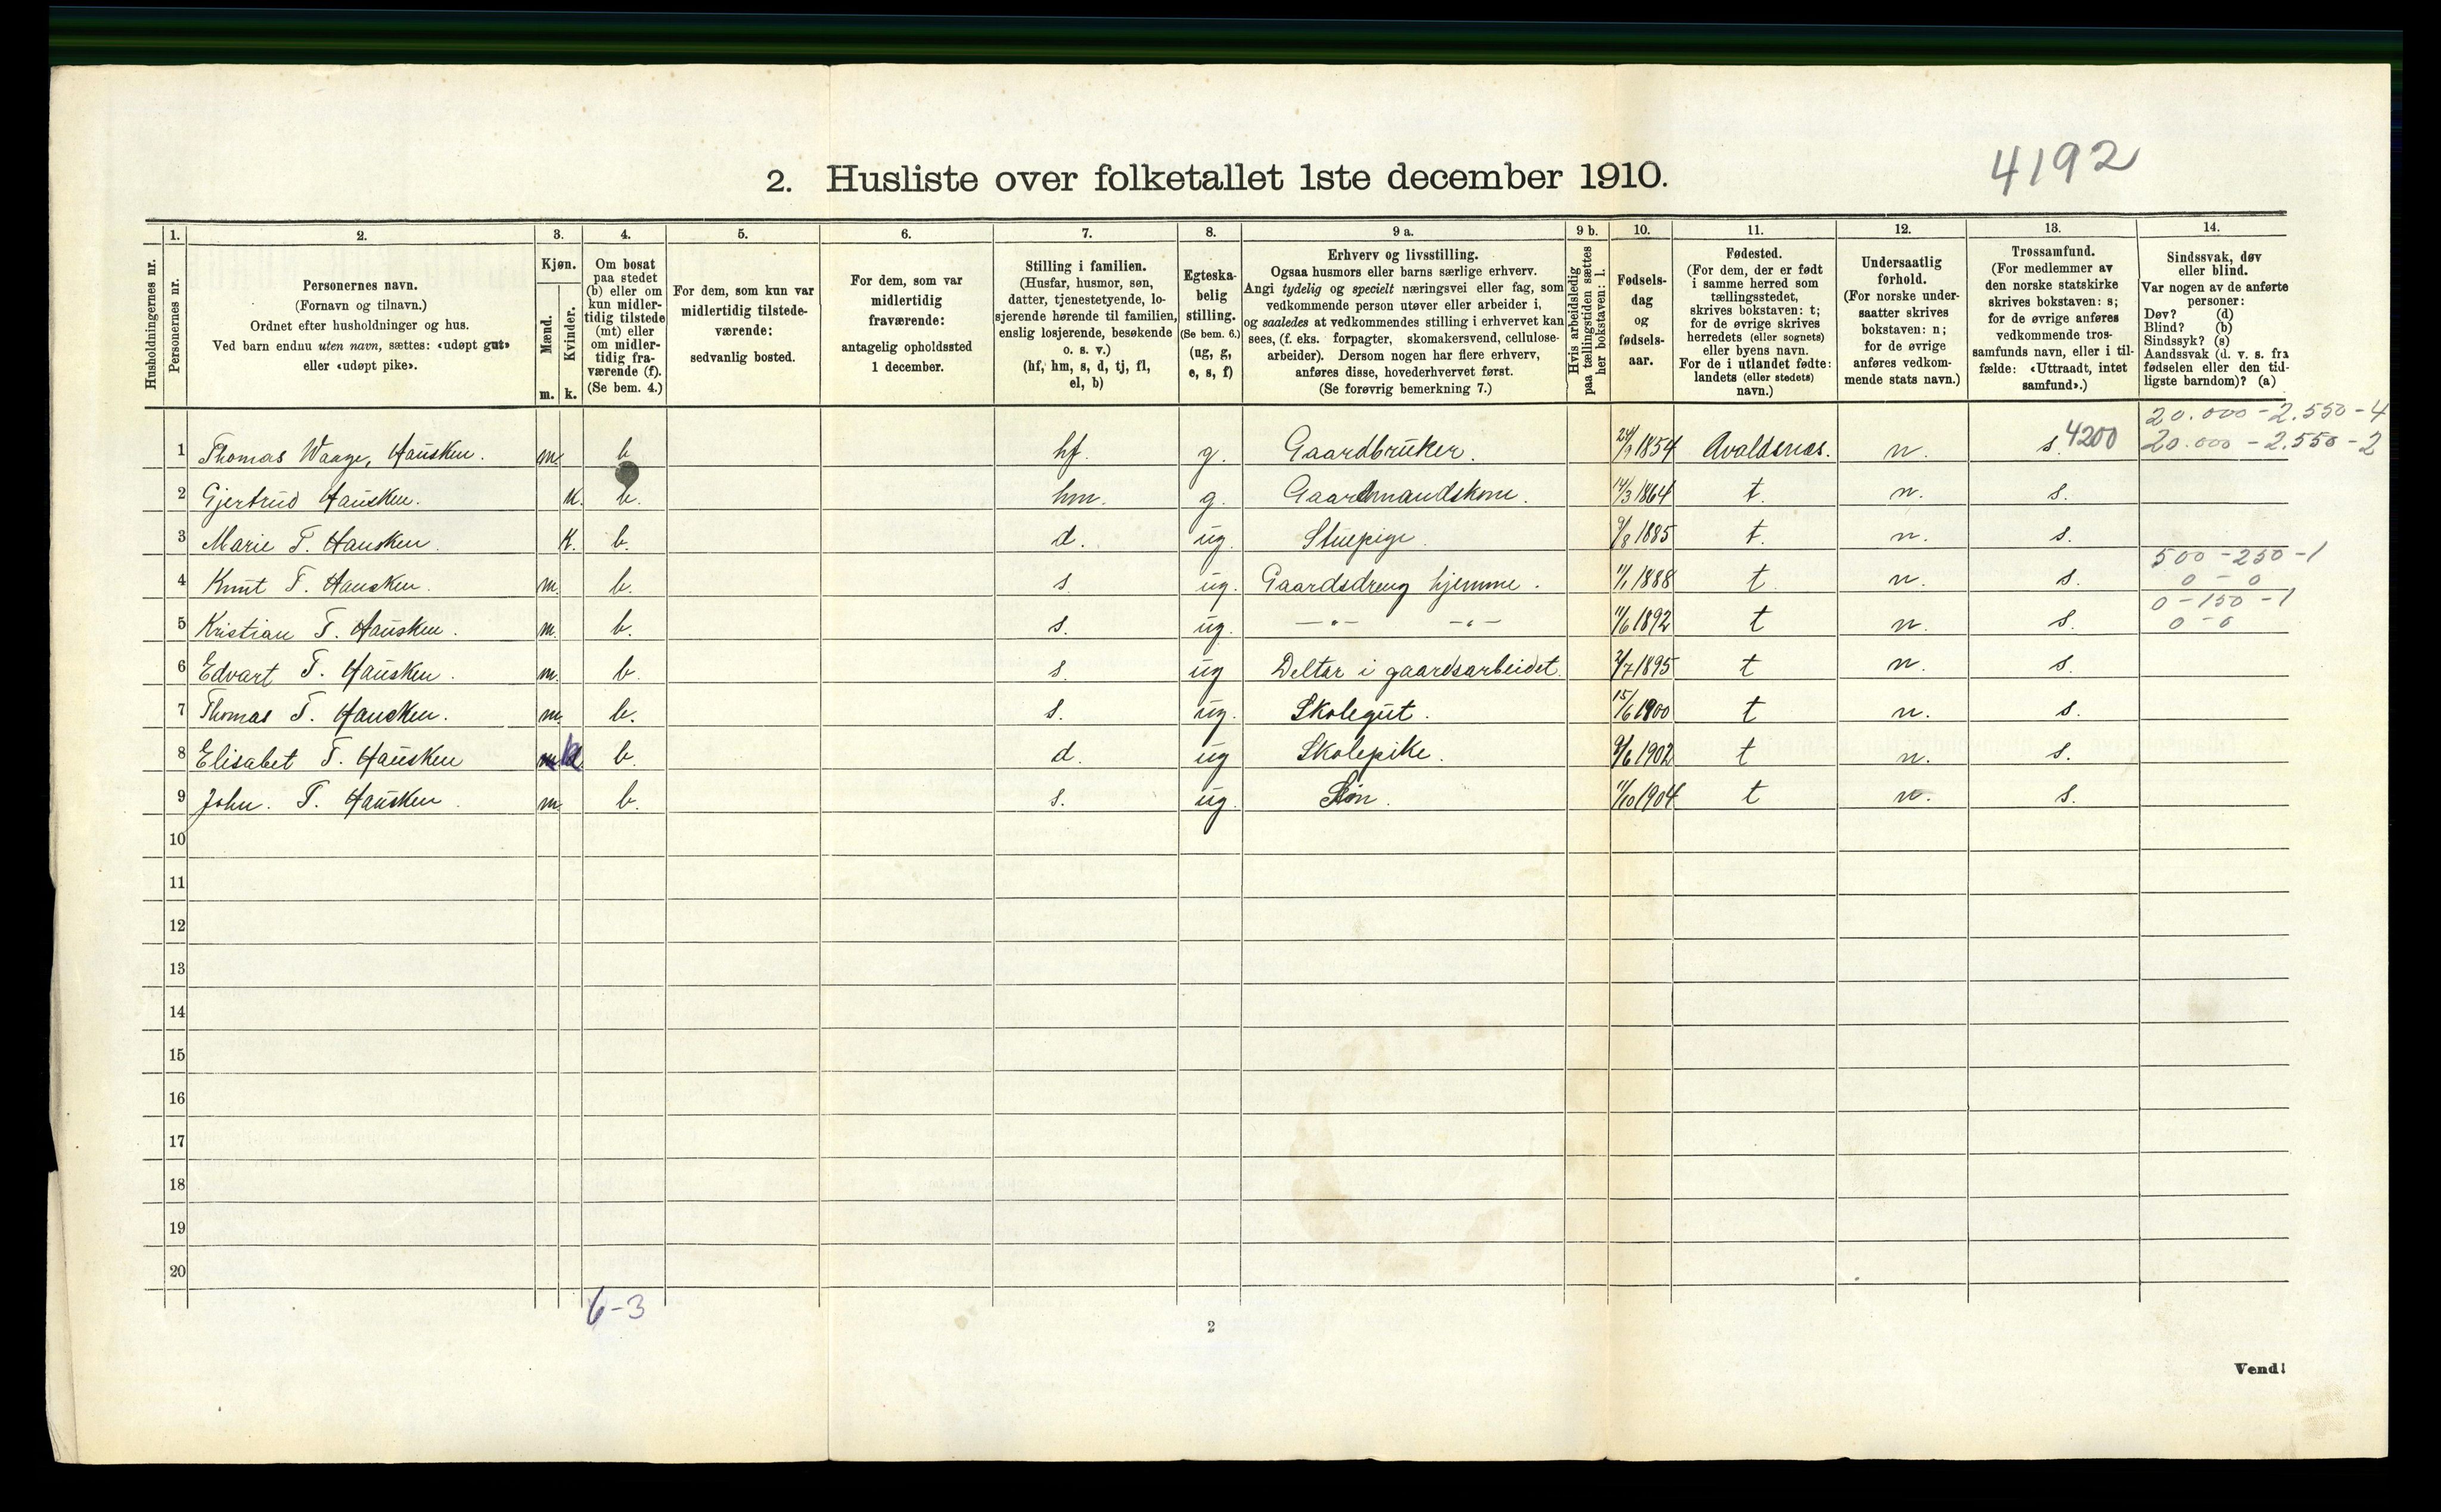 2. Husliste over folketallet 1ste december 1910.
4192
Husholdningernes nr.
1. Personernes nr.
2. Personernes navn.
(Fornavn og tilnavn.)
Ordnet efter husholdninger og hus.
Ved barn endnu uten navn, sættes: «udøpt gut»
eller «udøpt pike».
3. Kjøn.
Mænd. m.
Kvinder. k.
4. Om bosat
paa stedet
(b) eller om
kun midler-
tidig tilstede
(mt) eller
om midler-
tidig fra-
værende (f).
(Se bem. 4.)
5. For dem, som kun var
midlertidig tilstede-
værende:
sedvanlig bosted.
6. For dem, som var
midlertidig
fraværende:
antagelig opholdssted
1 december.
7. Stilling i familien.
(Husfar, husmor, søn,
datter, tjenestetyende, lo-
sjerende hørende til familien,
enslig losjerende, besøkende
o. s. v.)
(hf, hm, s, d, tj, fl,
el, b)
8. Egteska-
belig
stilling.
(Se bem. 6.)
(ug, g,
e, s, f)
9 a. Erhverv og livsstilling.
Ogsaa husmors eller barns særlige erhverv.
Angi tydelig og specielt næringsvei eller fag, som
vedkommende person utøver eller arbeider i,
og saaledes at vedkommendes stilling i erhvervet kan
sees, (f. eks. forpagter, skomakersvend, cellulose-
arbeider). Dersom nogen har flere erhverv,
anføres disse, hovederhvervet først.
(Se forøvrig bemerkning 7.)
9 b. Hvis arbeidsledig
paa tællingstiden sættes
her bokstaven: l.
10. Fødsels-
dag
og
fødsels-
aar.
11. Fødested.
(For dem, der er født
i samme herred som
tællingsstedet,
skrives bokstaven: t;
for de øvrige skrives
herredets (eller sognets)
eller byens navn.
For de i utlandet fødte:
landets (eller stedets)
navn.)
12. Undersaatlig
forhold.
(For norske under-
saatter skrives
bokstaven: n;
for de øvrige
anføres vedkom-
mende stats navn.)
13. Trossamfund.
(For medlemmer av
den norske statskirke
skrives bokstaven: s;
for de øvrige anføres
vedkommende tros-
samfunds navn, eller i til-
fælde: «Uttraadt, intet
samfund».)
14. Sindssvak, døv
eller blind.
Var nogen av de anførte
personer:
Døv? (d)
Blind? (b)
Sindssyk? (s)
Aandssvak (d. v. s. fra
fødselen eller den tid-
ligste barndom)? (a)
20.000-2.550-4
1 Thomas Waage, Hausken. m. b hf. g. Gaardbruker. 24/9 1854 Avaldsnes. n. s. 4200 20.000-2.550-2
2 Gjertrud Hausken. k. b. hm. g. Gaardmandskone. 14/3 1864 t. n. s.
3 Marie T. Hausken. k. b. d. ug. Stuepige. 9/8 1885 t. n. s.
500-250-1
4 Knut T. Hausken. m. b. s. ug. Gaardsdreng hjemme. 11/1 1888 t n. s. 0-0
0-150-1
5 Kristian T. Hausken. m. b. s. ug. —"— —"— 11/6 1892 t n. s. 0-0
6 Edvart T. Hausken. m. b. s. ug Deltar i gaardsarbeidet. 2/7 1895 t n. s.
7 Thomas T. Hausken. m. b. s. ug. Skolegut. 15/6 1900 t n. s.
8 Elisabet T. Hausken m k b. d. ug Skolepike. 9/6 1902 t n. s.
9 John. T. Hausken. m. b. s. ug. Søn. 11/10 1904 t n. s.
10
11
12
13
14
15
16
17
18
19
20
6-3
2
Vend!